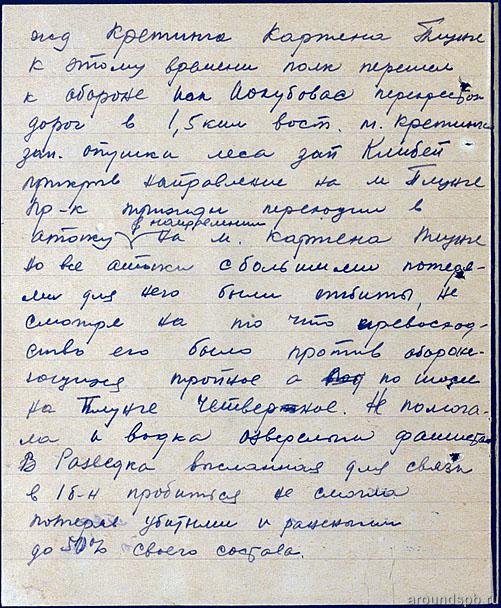 жд Кретинга Картена Плунге
к этому времени полк перешел
к обороне исп Иокубовас перекресток
дорог в 1,5 км вост. м. Кретинга
зап. опушки леса зап Клибей
прикрыв направление на м Плунге
Пр-к трижды переходил в
атаку в направлении на м. Картена Плунге
но все атаки с большими потеря-
ми для него были отбиты, не
смотря на то что превосход-
ство его было против обороня-
ющихся тройное а по шоссе
на Плунге Четверное. Не помога-
ла и водка озверелым фашистам
В Разведка высланная для связи
в 1б-н пробиться не смогла
потеряв убитыми и ранеными
до 50% своего состава.
aroundspb.r